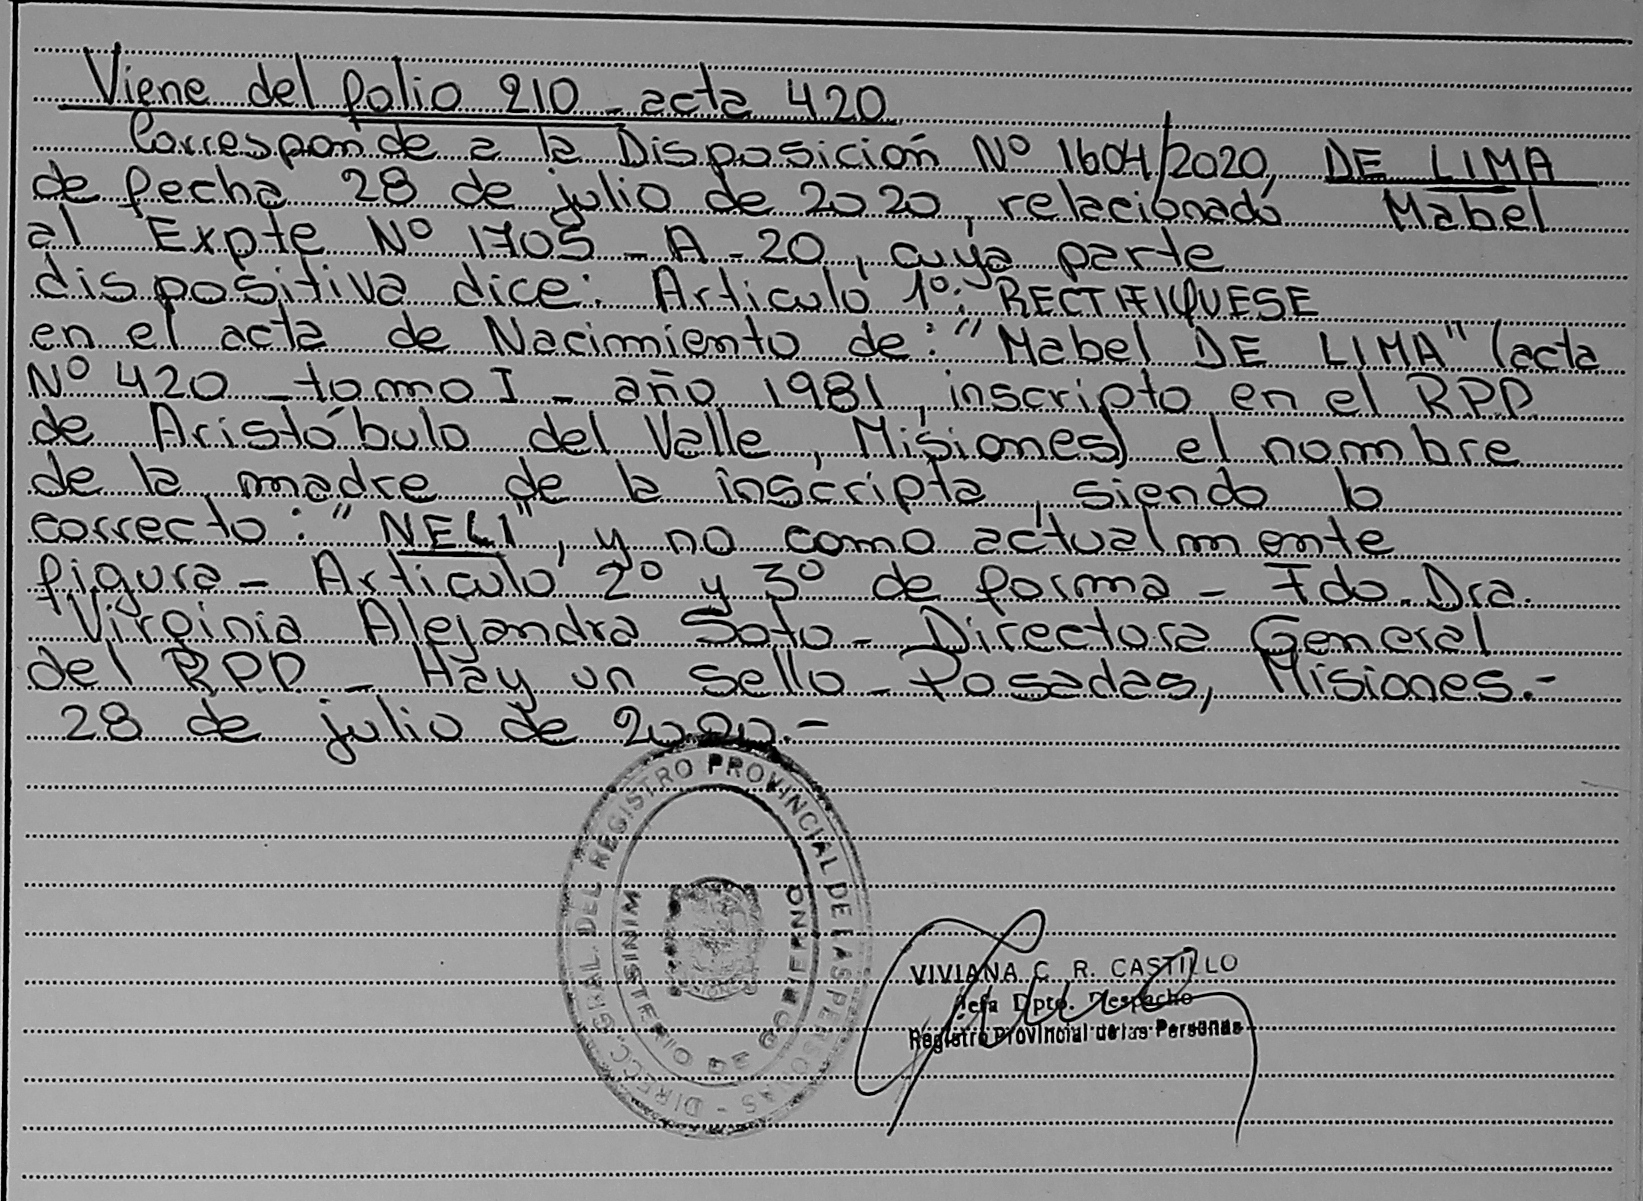 Viene del folio 210 - acta 420
Corresponde a la Disposición Nº 1604/2020, DE LIMA
de fecha 28 de julio de 2020, relacionado Mabel
al Expte Nº 1705 - A - 20, cuya parte
dispositiva dice: Articulo 1º: RECTIFIQUESE
en el acta de Nacimiento de: "Mabel DE LIMA" (acta
Nº 420 - tomo I - año 1981, inscripto en el RPP
de Aristóbulo del Valle, Misiones) el nombre
de la madre de la inscripta, siendo lo
correcto: "NELI", y no como actualmente
figura - Articulo 2º y 3º de forma - Fdo. Dra.
Virginia Alejandra Soto - Directora General
del RPP - Hay un sello - Posadas, Misiones.-
28 de julio de 2020.-
DIRECC. GRAL. DEL REGISTRO PROVINCIAL DE LAS PERSONAS -
MINISTERIO DE GOBIERNO
VIVIANA C. R. CASTILLO
Jefa Dpto. Despacho
Registro Provincial de las Personas